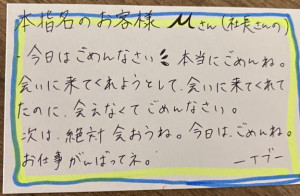 本指名のお客様 Mさん(社長さんの)
・今日はごめんなさい 本当にごめんね。
会いに来てくれようとして、会いに来てくれて
たのに、会えなくてごめんなさい。
次は、絶対会おうね。今日は、ごめんね。
お仕事がんばってネ。 ーイブー